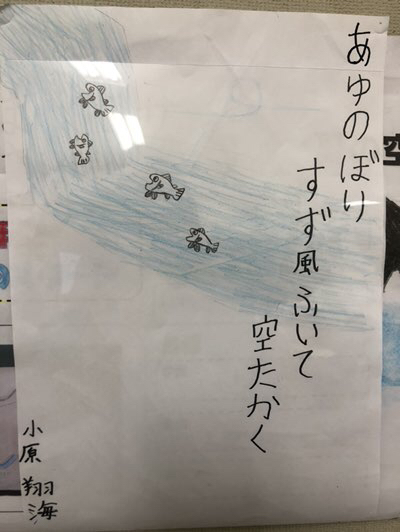 あゆのぼり
すず風ふいて
空たかく
小原 翔海
空